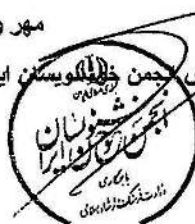 مهر و
انجمن خوشنویسان ایر
انجمن خوشنویسان ایران
باهمکاری
وزارت فرهنگ و ارشاد اسلامی